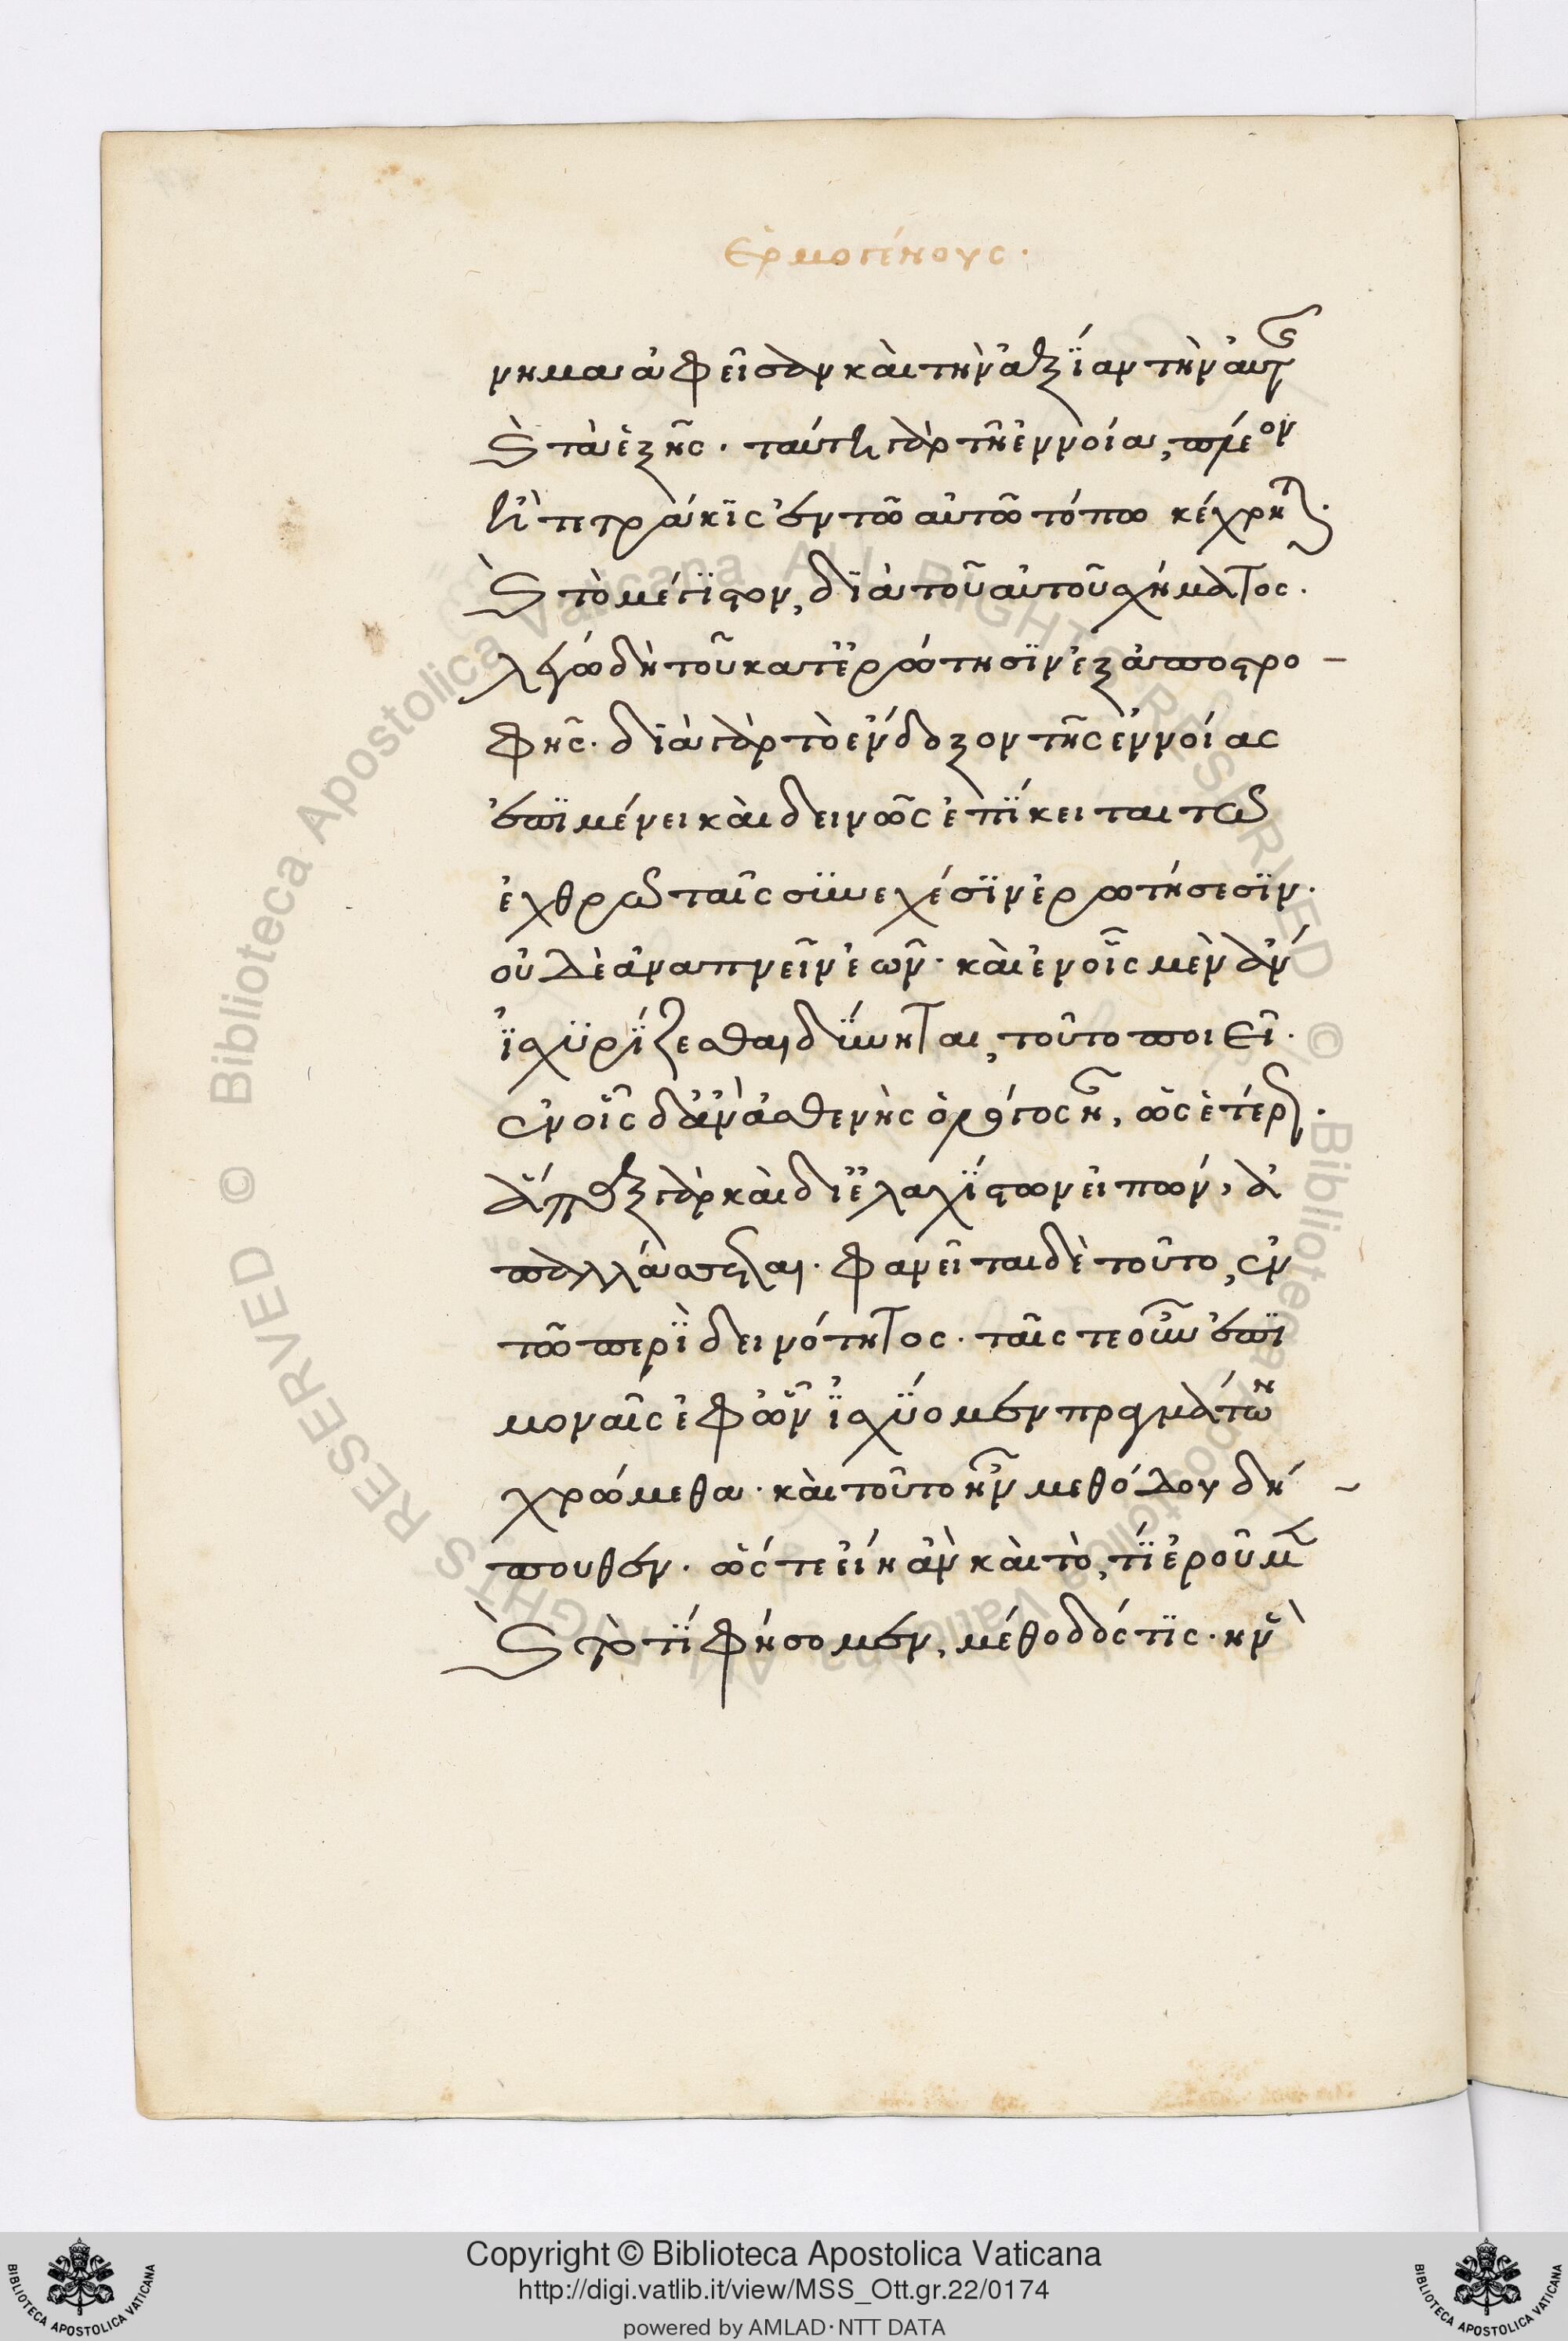 Ἑρμογένους.
νημα ἀφεῖσαν καὶ τὴν ἀξίαν τὴν αὐτῆς
καὶ τὰ ἑξῆς. ταύτῃ γὰρ τῇ ἐννοίᾳ,
τετράκις ἐν τῶ αὐτῶ τόπω κέχρηται.
καὶ τὸ μέγιστον, διὰ τοῦ αὐτοῦ σχήματος.
λέγω δὴ τοῦ κατ' ἐρώτησιν ἐξ ἀποστρο-
φῆς. διὰ γὰρ τὸ ἔνδοξον τῆς ἐννοίας
ἐπιμένει καὶ δεινῶς ἐπίκειται τῶ
ἐχθρῶ ταῖς συνεχέσιν ἐρωτήσεσιν.
οὐδὲ ἀναπνεῖν ἐῶν. καὶ ἐν οἷς μὲν ἂν
ἰσχυρίζεσθαι δύνηται, τοῦτο ποιεῖ.
ἐν οἷς δ' ἂν ἀσθενὴς ὁ λόγος ἦ, ὡς ἑτέρως.
γὰρ καὶ δι' ἐλαχίστων εἰπών,
πολλά φανεῖται δὲ τοῦτο, ἐν
τῶ περὶ δεινότητος. ταῖς τε οὖν ἐπι
μοναῖς ἐφ' ὧν ἰσχύομεν πραγμάτων
χρώμεθα. καὶ τοῦτο ἦν μεθόδου δή-
πουθεν. ὥστε εἴη ἂν καὶ τὸ, τί ἐροῦμεν
καὶ τί φήσομεν, μέθοδός τις. ἣν
Copyright © Biblioteca Apostolica Vaticana
http://digi.vatlib.it/view/MSS_Ott.gr.22/0174
powered by AMLAD·NTT DATA